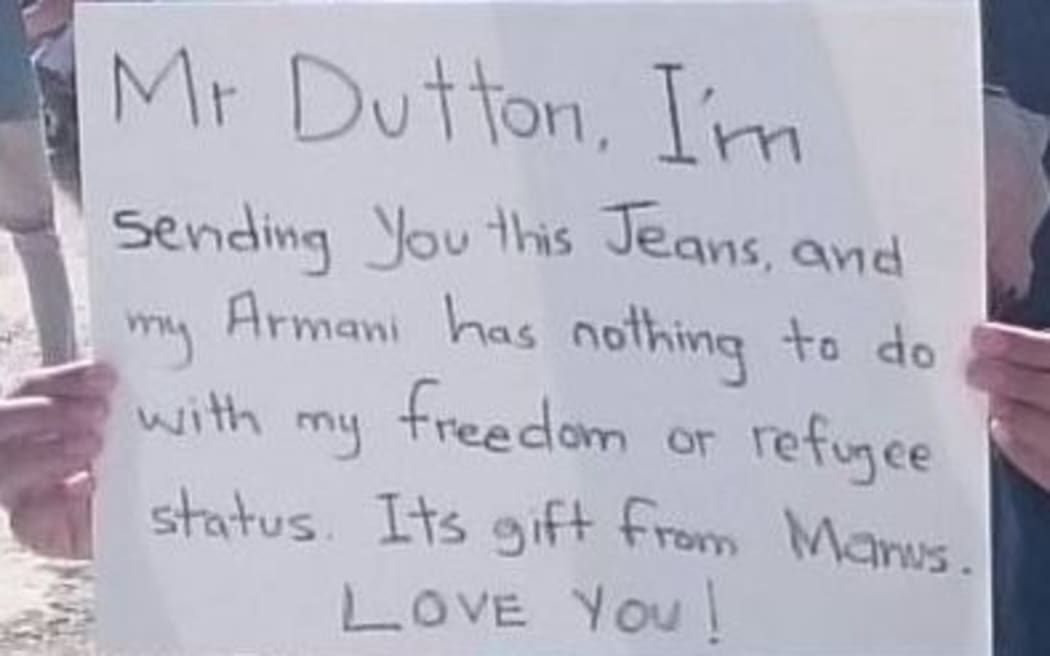 Mr Dutton, I'm
sending You this Jeans, and
my Armani has nothing to do
with my freedom or refugee
status. Its gift from Manus.
LOVE YOU!